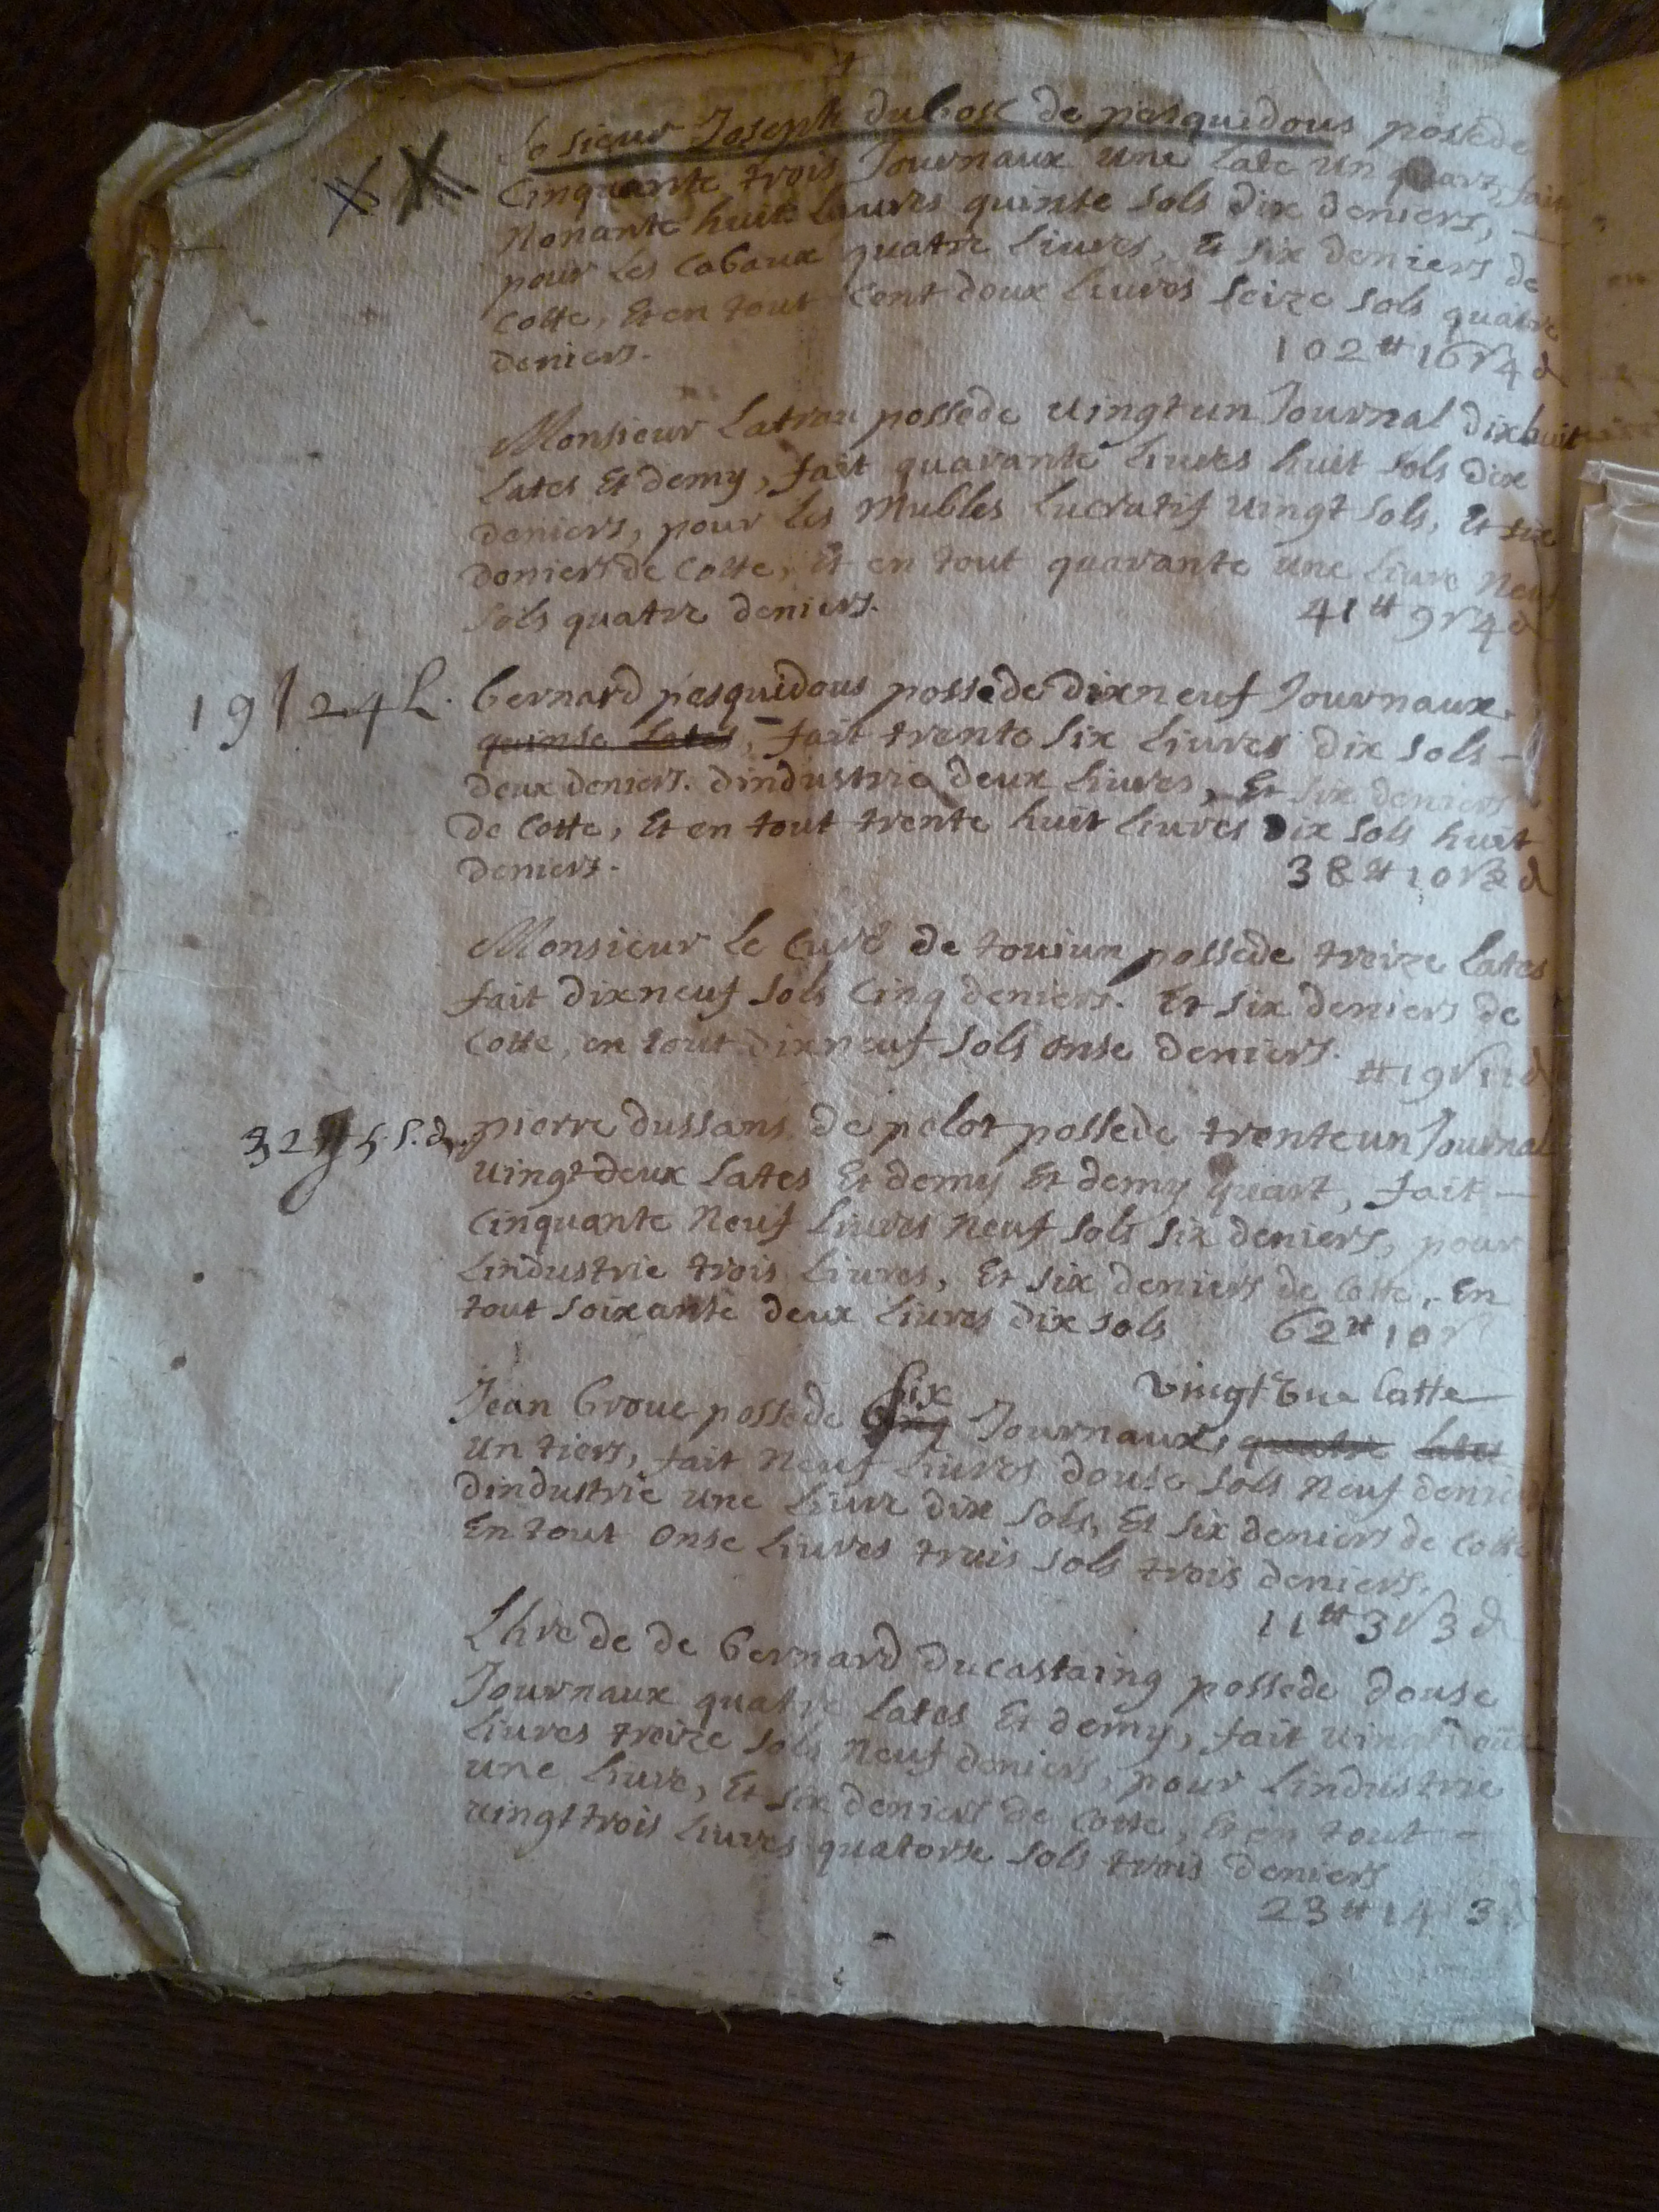 Le sieur Joseph dubosc de pesquidous possede
Cinquante trois Journaux une Late un quart, fait
Nonante huit Liures quinse sols dix deniers,
pour les Cabaux quatre Liures, Et six deniers de
Cotte, Et en tout Cent deux Liures seize sols quatre
deniers.
102 ₶ 16 s 4 d
Monsieur Latrau possede uingt un Journal dixhuit
Lates Et demy, fait quarante Liures huit sols dix
deniers, pour les Mubles Lucratifs uingt sols, Et six
deniers de Cotte, Et en tout quarante une Liure Neuf
sols quatre deniers.
41 ₶ 9 s 4 d
19 J 24 L.
bernard pesquidous possede dixneuf Journaux
quinse Lates, fait trente six Liures dix sols
deux deniers. dindustrie deux Liures, Et six deniers
de Cotte, Et en tout trente huit Liures dix sols huit
deniers.
38 ₶ 10 s 8 d
Monsieur Le Curé de toujun possede treize Lates
fait dixneuf sols Cinq deniers. Et six deniers de
Cotte, en tout dixneuf sols onse deniers.
₶ 19 s 11 d
32
pierre dussans de pelot possede trente un Journal
uingt deux Lates Et demy Et demy quart, fait
Cinquante Neuf Liures Neuf sols six deniers, pour
Lindustrie trois Liures, Et six deniers de Cotte, En
tout soixante deux Liures dix sols
62 ₶ 10 s
six vingt Une latte
Jean broue possede Cinq Journaux quatre Lates
un tiers, fait Neuf Liures douse sols Neuf deniers
dindustrie une Liure dix sols, Et six deniers de Cotte
En tout onse Liures trois sols trois deniers.
11 ₶ 3 s 3 d
Lhrede de bernard ducastaing possede douse
Journaux quatre Lates Et demy, fait uingt deux
Liures treize sols Neuf deniers, pour Lindustrie
une Liure, Et six deniers de Cotte, Et en tout
uingt trois Liures quatorse sols trois deniers
23 ₶ 14 3 d